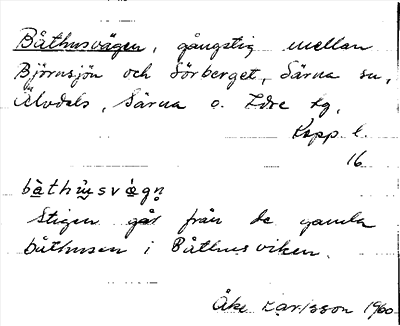 Båthusvägen, gångstig mellan
Björnsjön och Sörberget, Särna sn,
Älvdals, Särna o. Idre tg,
Kopp. l.
16
båthu̇svägn̥
Stigen går från de gamla
båthusen i Båthusviken.
Åke Karlsson 1960